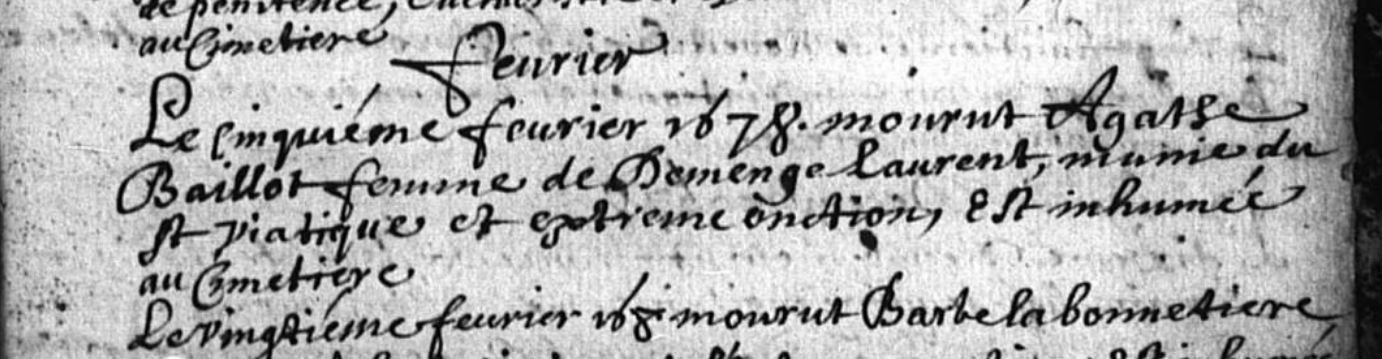 de penitence,
au Cimetiere
feurier
Le Cinquiéme feurier 1678. mourut Agathe
Baillot femme de Demenge Laurent, munie du
st viatique et extreme onction, Est inhumée
au Cimetiere
Le vingtiéme feurier 1678 mourut Barbe la bonnetiere,